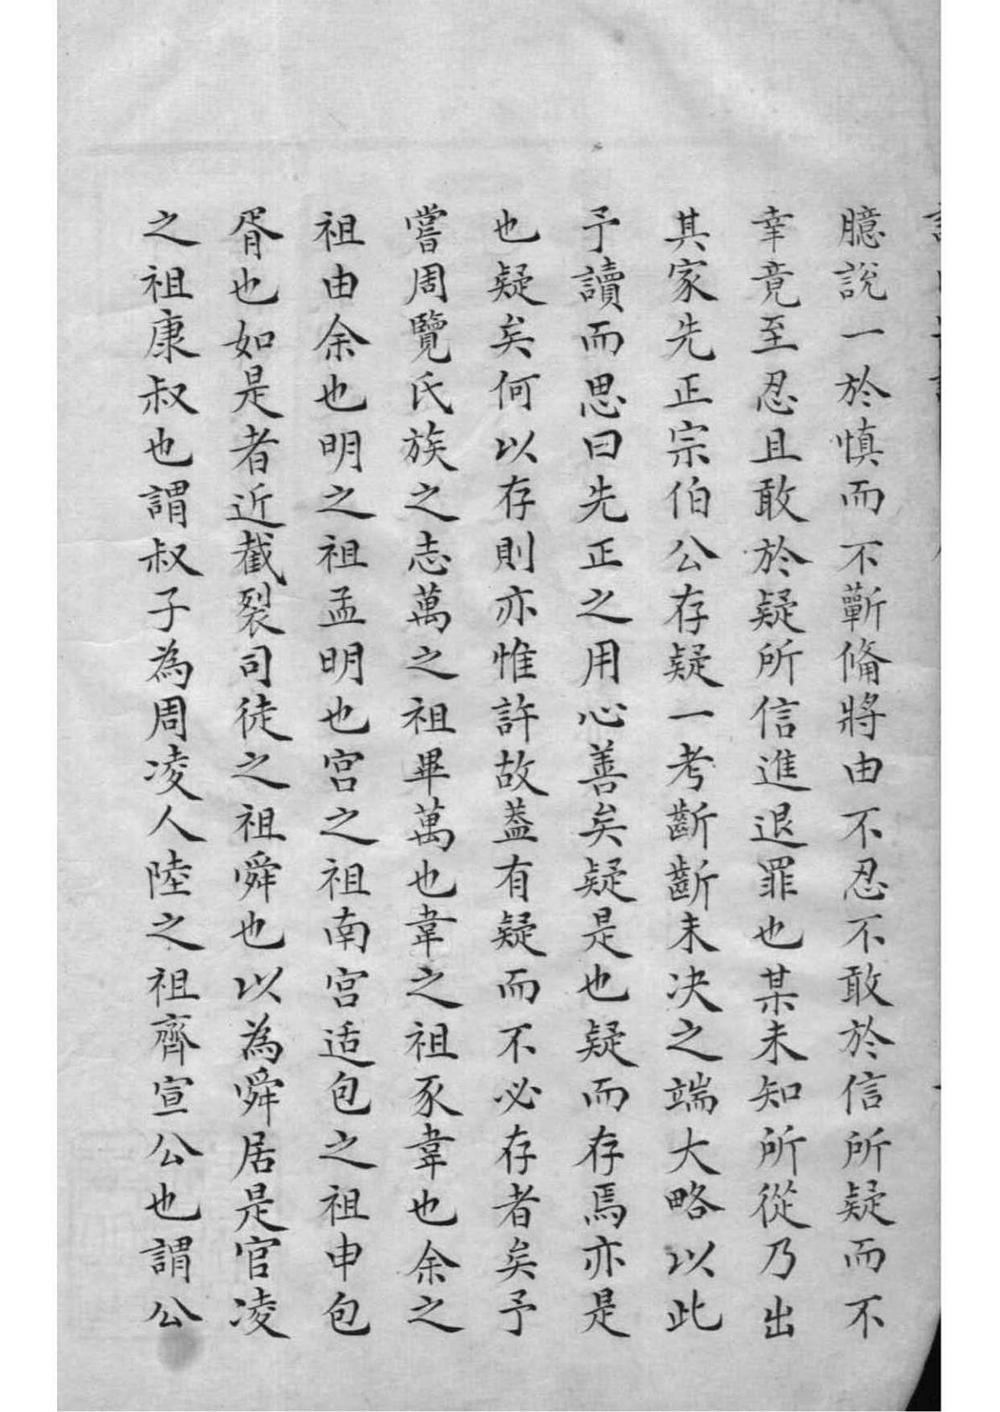 臆說一於慎而不蘄脩將由不忍不敢於信所疑而不
幸竟至忍且敢於疑所信進退罪也某未知所從乃出
其家先正宗伯公存疑一考斷斷未决之端大略以此
予讀而思曰先正之用心善矣疑是也疑而存焉亦是
也疑矣何以存則亦惟許故葢有疑而不必存者矣予
嘗周覽氏族之志萬之祖畢萬也韋之祖豕韋也余之
祖由余也明之祖孟明也宮之祖南宮适包之祖申包
胥也如是者近截裂司徒之祖舜也以為舜居是官凌
之祖康叔也謂叔子為周凌人陸之祖齊宣公也謂公